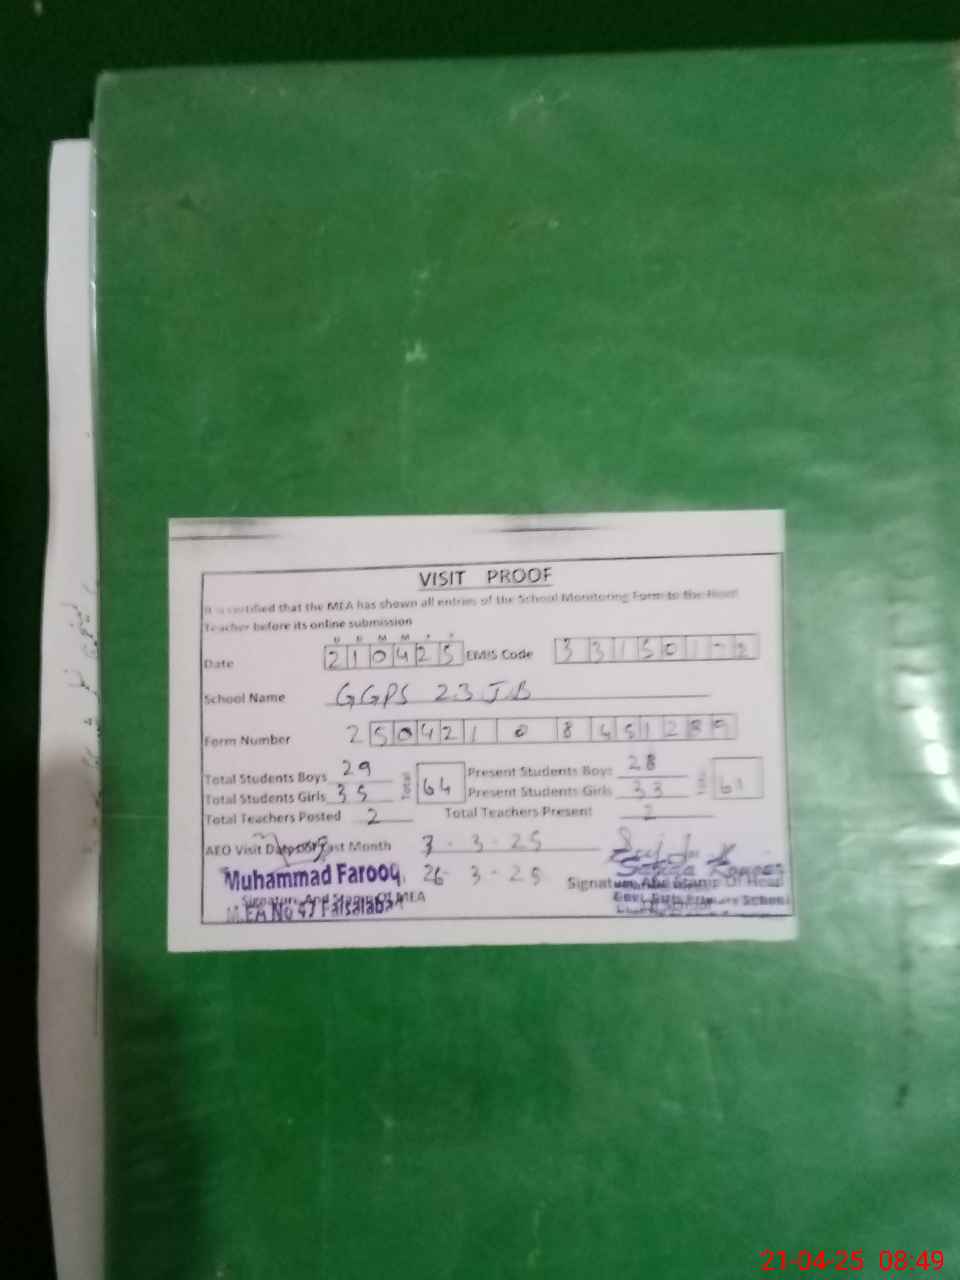 VISIT PROOF
It is certified that the MEA has shown all entries of the School Monitoring Form to the Head
Teacher before its online submission
D D M M Y Y
Date 210425 EMIS Code 33150172
School Name GGPS 23 JB
Form Number 2504210845128
Total Students Boys 29 Total 64 Present Students Boys 28
Total Students Girls 35 Present Students Girls 33 Total 61
Total Teachers Posted 2 Total Teachers Present 2
AEO Visit Date of Last Month 3-3-25
Muhammad Farooq 26-3-25 Signature And Stamp Of Head
Signature And Stamp Of MEA
M.EA No 47 Faisalabad
Govt. Girls Primary School
21-04-25 08:49